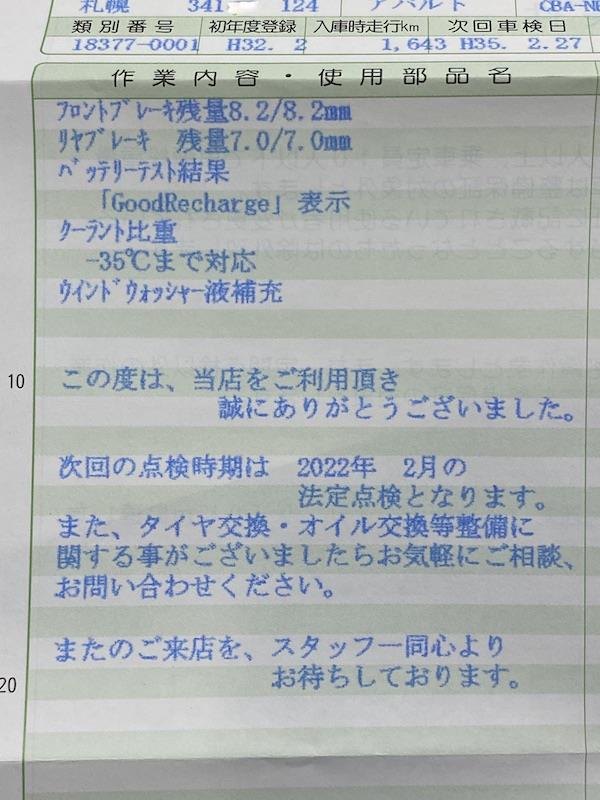 札幌 341 124 アバルト CBA-NE
類別番号 初年度登録 入庫時走行km 次回車検日
18377-0001 H32. 2 1,643 H35. 2.27
作業内容・使用部品名
ﾌﾛﾝﾄﾌﾞﾚｰｷ残量8.2/8.2mm
ﾘﾔﾌﾞﾚｰｷ 残量7.0/7.0mm
ﾊﾞｯﾃﾘｰﾃｽﾄ結果
「GoodRecharge」表示
ｸｰﾗﾝﾄ比重
-35℃まで対応
ｳｲﾝﾄﾞｳｫｯｼｬｰ液補充
10 この度は、当店をご利用頂き
誠にありがとうございました。
次回の点検時期は 2022年 2月の
法定点検となります。
また、タイヤ交換・オイル交換等整備に
関する事がございましたらお気軽にご相談、
お問い合わせください。
またのご来店を、スタッフ一同心より
20 お待ちしております。